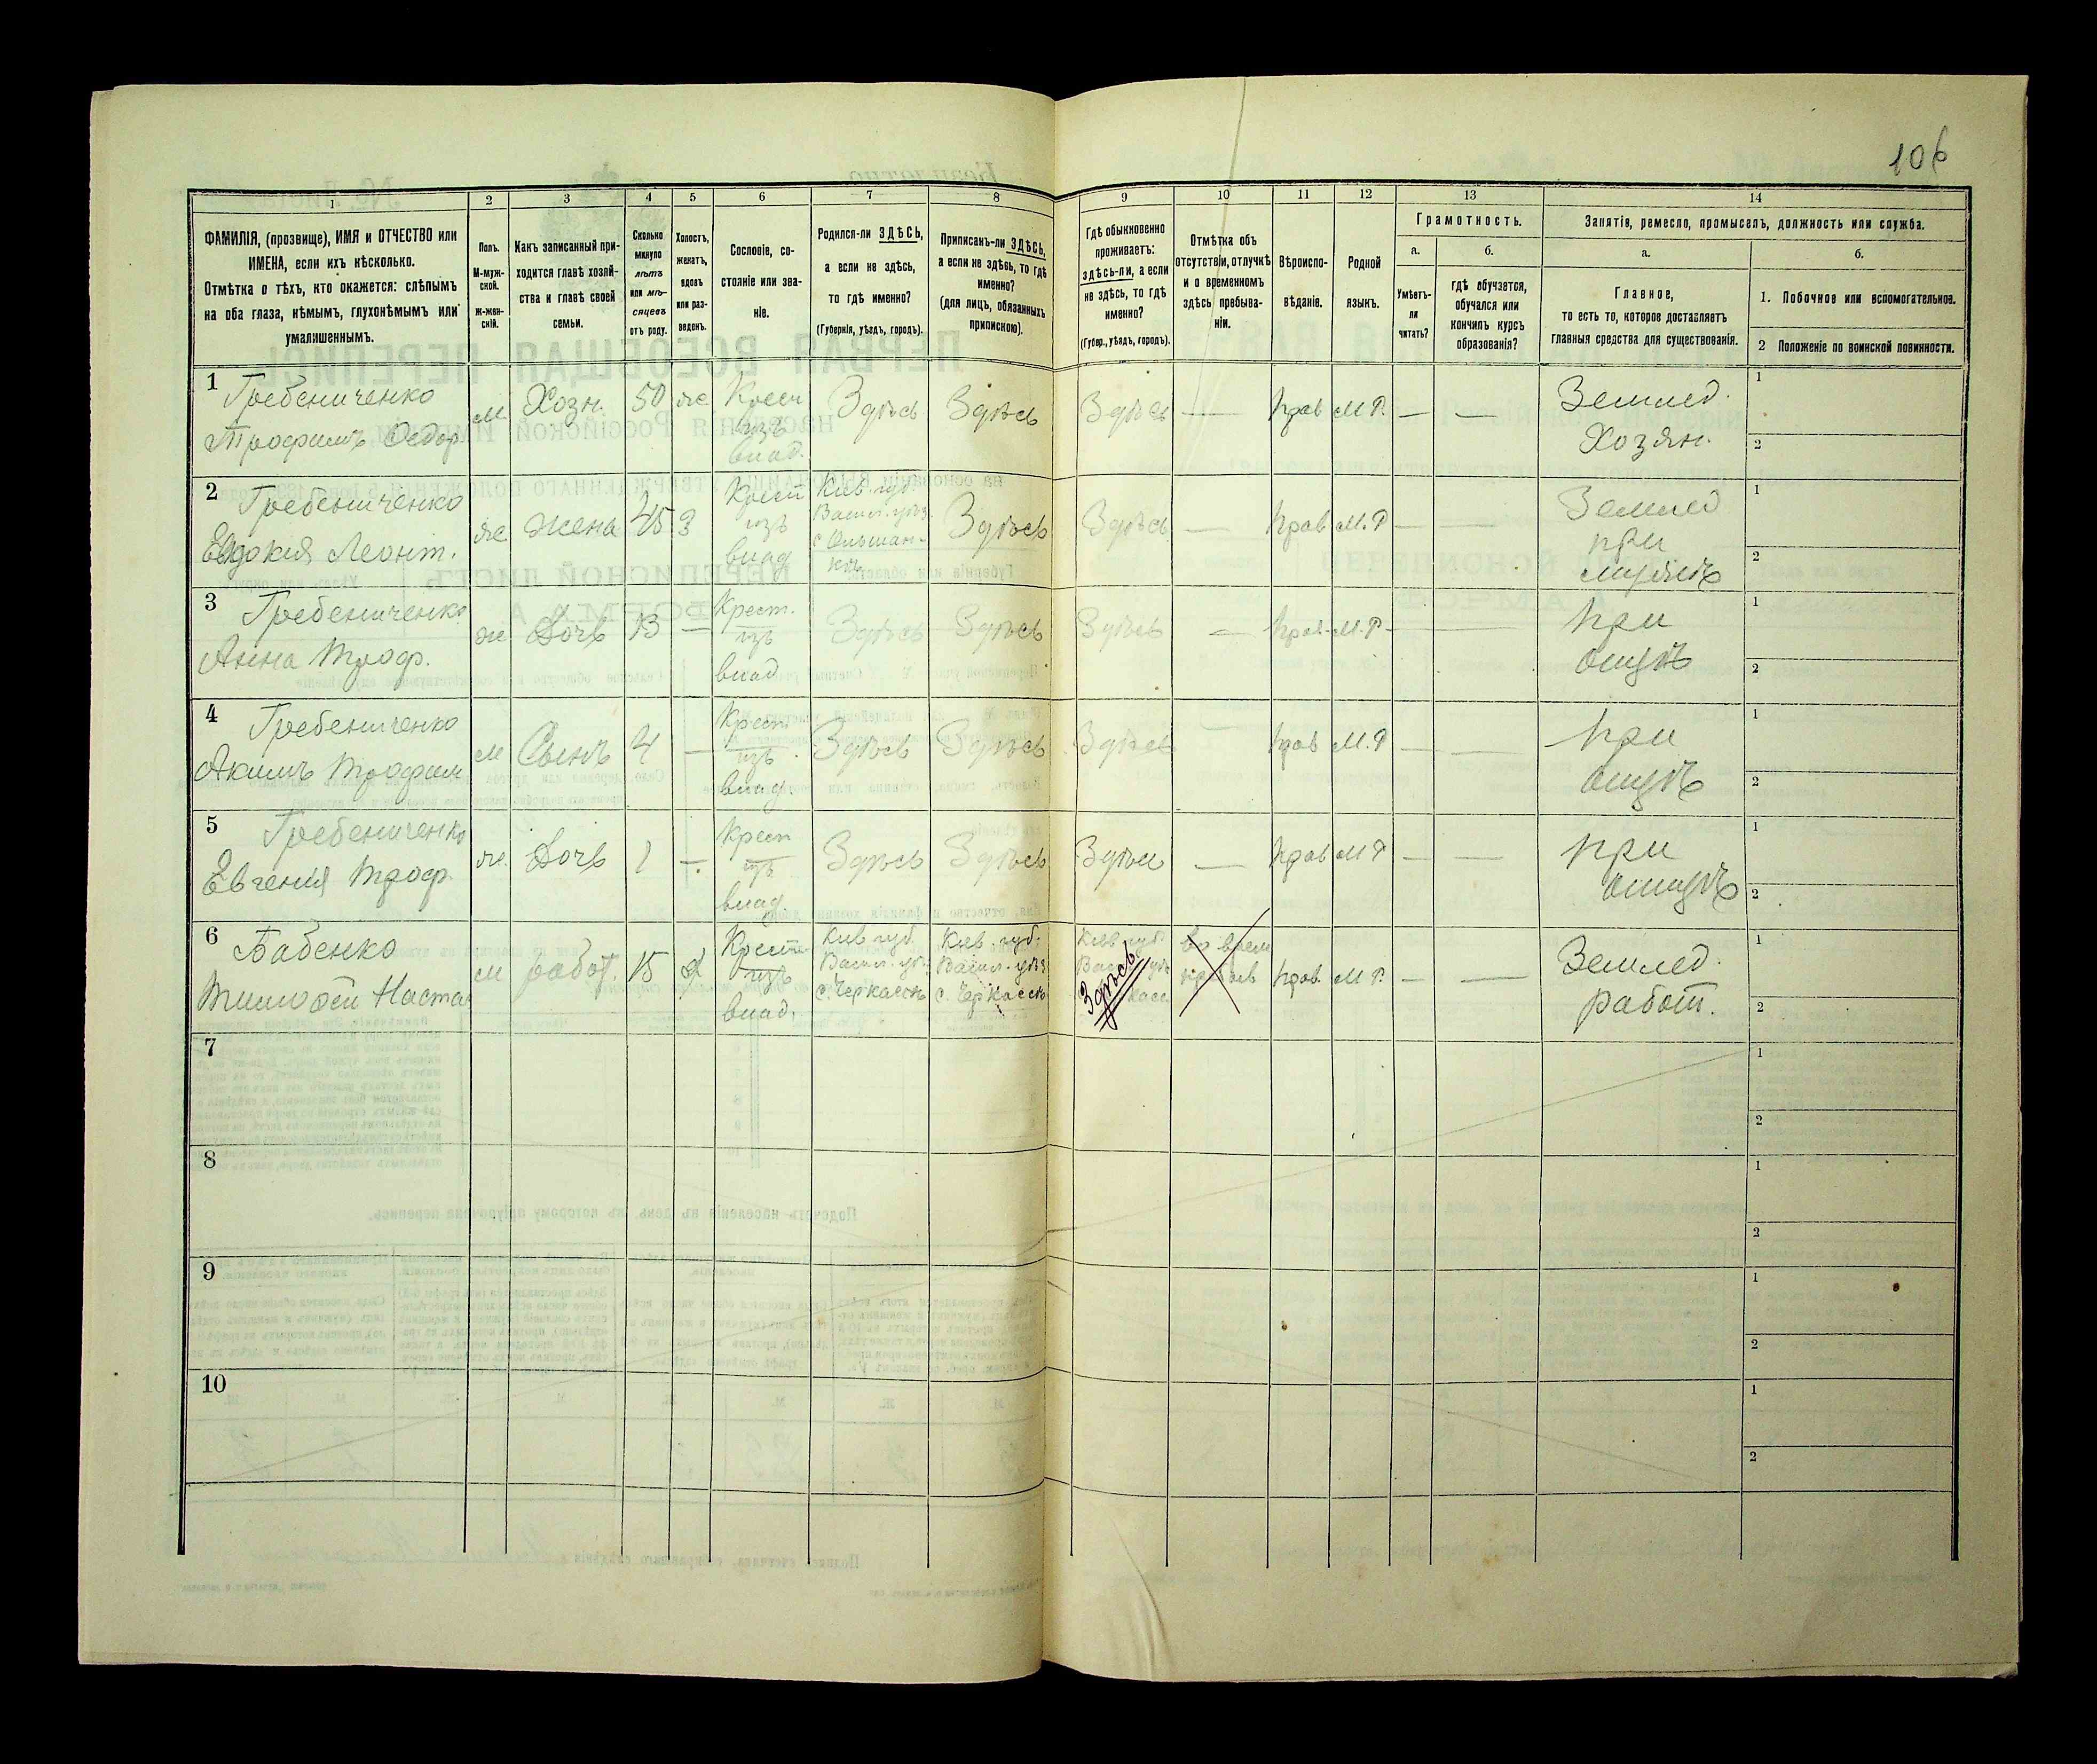 106
1
ФАМИЛІЯ, (прозвище), ИМЯ и ОТЧЕСТВО или
ИМЕНА, если ихъ нѣсколько.
Отмѣтка о тѣхъ, кто окажется: слѣпымъ
на оба глаза, нѣмымъ, глухонѣмымъ или
умалишеннымъ.
2
Полъ.
М-муж-
ской.
ж-жен-
скій.
3
Какъ записанный при-
ходится главѣ хозяй-
ства и главѣ своей
семьи.
4
Сколько
минуло
лѣтъ
или мѣ-
сяцевъ
отъ роду.
5
Холостъ,
женатъ,
вдовъ
или раз-
веденъ.
6
Сословіе, со-
стояніе или зва-
ніе.
7
Родился-ли ЗДѢСЬ,
а если не здѣсь,
то гдѣ именно?
(Губернія, уѣздъ, городъ).
8
Приписанъ-ли ЗДѢСЬ,
а если не здѣсь, то гдѣ
именно?
(для лицъ, обязанныхъ
припискою).
9
Гдѣ обыкновенно
проживаетъ:
здѣсь-ли, а если
не здѣсь, то гдѣ
именно?
(Губер., уѣздъ, городъ).
10
Отмѣтка объ
отсутствіи, отлучкѣ
и о временномъ
здѣсь пребыва-
ніи.
11
Вѣроиспо-
вѣданіе.
12
Родной
языкъ.
13
Грамотность.
а.
Умѣетъ-
ли
читать?
б.
гдѣ обучается,
обучался или
кончилъ курсъ
образованія?
14
Занятія, ремесло, промыселъ, должность или служба.
а.
Главное,
то есть то, которое доставляетъ
главныя средства для существованія.
б.
1. Побочное или вспомогательное.
2 Положеніе по воинской повинности.
1
Гребениченко
Трофимъ Федор.
м
Хозн.
50
же
Крест
изъ
влад.
Здѣсь
Здѣсь
Здѣсь
—
прав
М Р.
—
—
Землед.
Хозян.
1
2
2
Гребениченко
Евдокия Леонт.
же
жена
45
З
Крест
изъ
влад
Киев. губ.
Васил. уѣз
с Ольшан-
ки
Здѣсь
Здѣсь
—
прав
М. Р
—
—
Землед
при
мужѣ
1
2
3
Гребениченко
Анна Троф.
же
Дочь
13
—
Крест.
изъ
влад
Здѣсь
Здѣсь
Здѣсь
—
прав.
М. Р
—
—
при
отцѣ
1
2
4
Гребениченко
Акимъ Трофим
м
Сынъ
4
—
Крест.
изъ
влад
Здѣсь
Здѣсь
Здѣсь
—
прав
М. Р
—
—
при
отцѣ
1
2
5
Гребениченко
Евгения Троф.
же.
Дочь
1
—
Крест
изъ
влад.
Здѣсь
Здѣсь
Здѣсь
—
прав
М Р
—
—
при
отцѣ
1
2
6
Бабенко
Тимофей Наста
м
работ.
15
Х
Крест
изъ
влад.
Киев губ.
Васил. уѣз
с. Черкассъ
Киев. губ.
Васил. уѣз
с. Черкассъ
Здѣсь
прав.
М Р.
—
—
Землед.
работ.
1
2
7
1
2
8
1
2
9
1
2
10
1
2